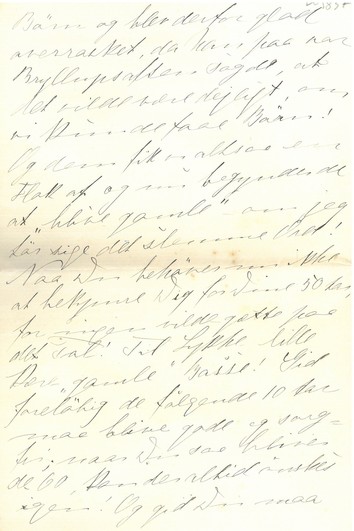 Børn og blev derfor glad
overrasket, da han paa vor
Bryllupsaften sagde, at
det vilde være dejligt, om
vi kunde faae Børn!
Og dem fik vi altsaa en
Flok af og nu begynder de
at "blive gamle" - om jeg
tør sige det slemme Ord!
Naa Du behøver nu ikke
at bekymre Dig for dine 50 Aar,
for ingen vilde gætte paa
det Tal! Til Lykke lille
kære "gamle" Basse! Gid
foreløbig de følgende 10 Aar
maa blive gode og sorg=
fri, naar Du saa bliver
de 60, kan der altid ønskes
igen! Og gid Du maa